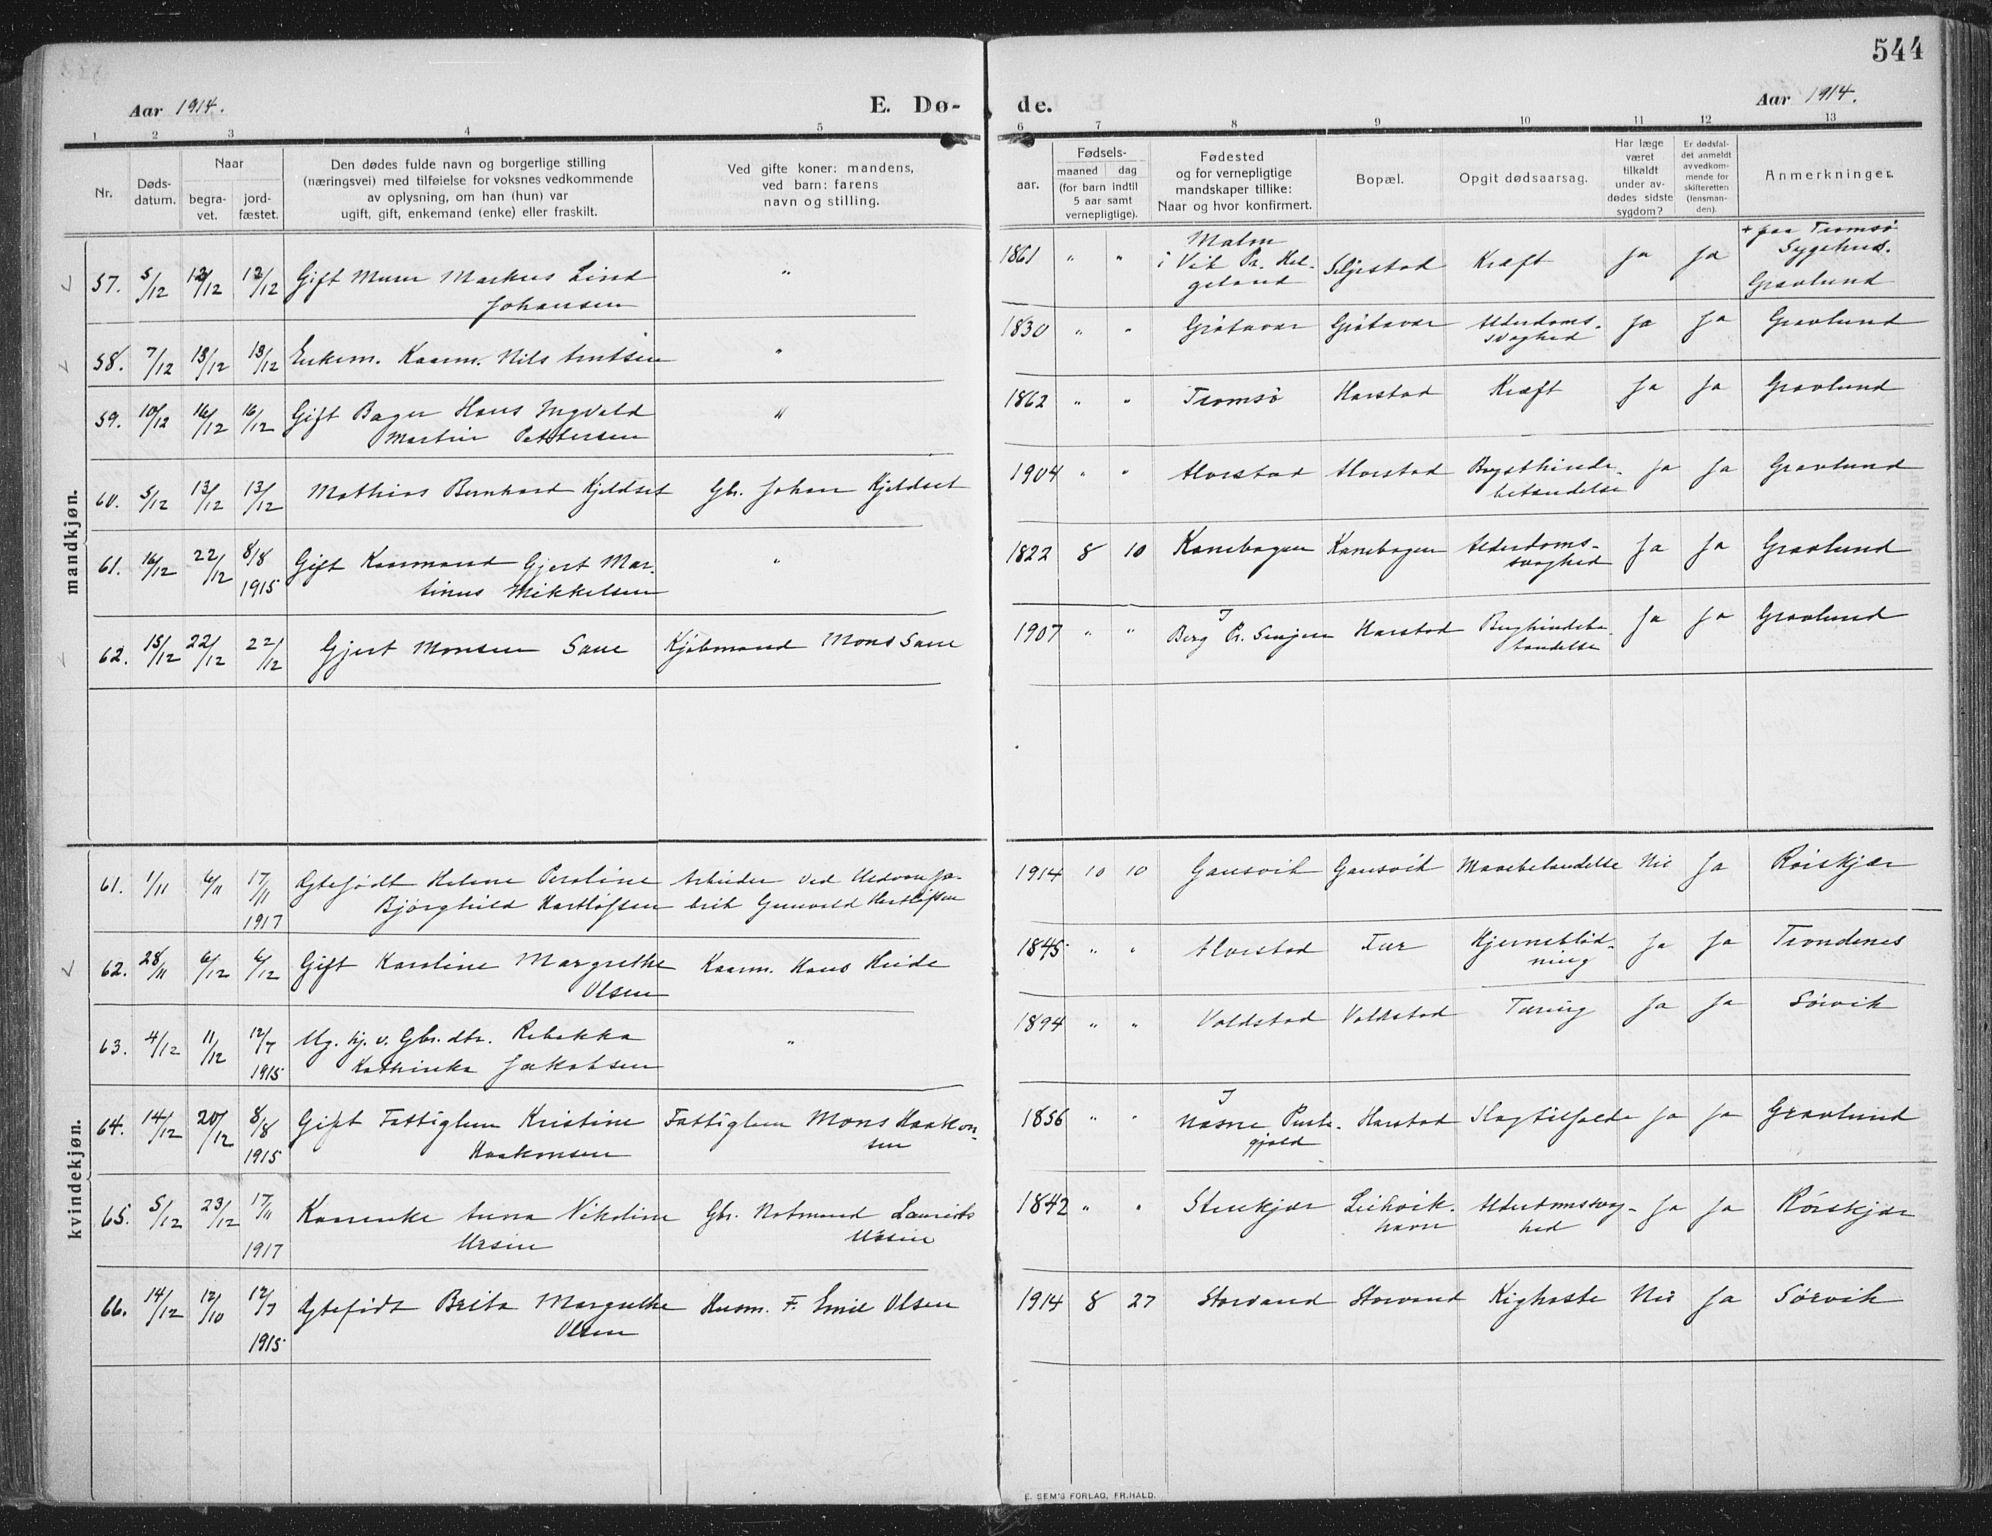 544
Aar 1914. E. Dø- de. Aar 1914.
1 2 3 4 5 6 7 8 9 10 11 12 13
Nr.
Døds-
datum.
Naar
begra-
vet.
jord-
fæstet.
Den dødes fulde navn og borgerlige stilling
(næringsvei) med tilføielse for voksnes vedkommende
av oplysning, om han (hun) var
ugift, gift, enkemand (enke) eller fraskilt.
Ved gifte koner: mandens,
ved barn: farens
navn og stilling.
Fødsels-
aar. maaned dag
(for barn indtil
5 aar samt
vernepligtige).
Fødested
og for vernepligtige
mandskaper tillike:
Naar og hvor konfirmert.
Bopæl.
Opgit dødsaarsag.
Har læge
været
tilkaldt
under av-
dødes sidste
sygdom?
Er dødsfal-
det anmeldt
av vedkom-
mende for
skifteretten
(lensman-
den).
Anmerkninger.
mandkjøn.
57. 5/12 12/12 12/12 Gift Murer Markus Lind
Johansen
" 1861 " " Malm
i Vik Pr. Hel-
geland
Seljestad Kræft Ja Ja + paa Tromsø
Sygehus.
Gravlund
58. 7/12 13/12 13/12 Enkem. Kaarm. Nils Arntsen " 1830 " " Grøtavær Grøtavær Alderdoms-
svaghed
Ja Ja Gravlund
59. 10/12 16/12 16/12 Gift Bager Hans Ingvald
Martin Pettersen
" 1862 " " Tromsø Harstad Kræft Ja Ja Gravlund
60. 5/12 13/12 13/12 Mathias Bernhard Kjeldset Gbr. Johan Kjeldset 1904 " " Alvestad Alvestad Brysthinde-
betændelse
Ja Ja Gravlund
61. 16/12 22/12 8/8
1915
Gift Kaarmand Gjert Mar-
tinus Mikkelsen
" 1822 8 10 Kanebogen Kanebogen Alderdoms-
svaghed
Ja Ja Gravlund
62. 15/12 22/12 22/12 Gjert Monsen Sane Kjøbmand Mons Sane 1907 " " I
Berg Pr. Senjen
Harstad Bughindebe-
tændelse
Ja Ja Gravlund
kvindekjøn.
61. 1/11 6/11 17/11
1917
Ægtefødt Helene Peroline
Bjørghild Hartløfsen
Arbeider ved Uldvarefa-
brik Gunvald Hartløfsen
1914 10 10 Gausvik Gausvik Mavebetændelse Nei Ja Røiskjær
62. 28/11 6/12 6/12 Gift Karoline Margrethe
Olsen
Kaarm. Hans Heide 1845 " " Alvestad Hjerneblød-
ning
Ja Ja Trondenes
63. 4/12 11/12 12/7
1915
Ug. hj. v. Gbr. dtr. Rebekka
Kathinka Jakobsen
" 1894 " " Voldstad Voldstad Tæring Ja Ja Sørvik
64. 14/12 20/12 8/8
1915
Gift Fattiglem Kristine
Haakonsen
Fattiglem Mons Haakon-
sen
1856 " " I
Næsne Preste-
gjeld
Harstad Slagtilfælde Ja Ja Gravlund
65. 5/12 23/12 17/11
1917
Kaarenke Anna Nikoline
Ursin
Gbr. Notmand Laurids
Ursin
1842 " " Stenkjær Leikvik-
havn
Alderdomssvag-
hed
Ja Ja Røiskjær
66. 14/12 12/10 12/7
1915
Ægtefødt Brita Margrethe
Olsen
Husm. F. Emil Olsen 1914 8 27 Storvand Storvand Kighoste Nei Ja Sørvik
E. SEM'S FORLAG, FR.HALD.